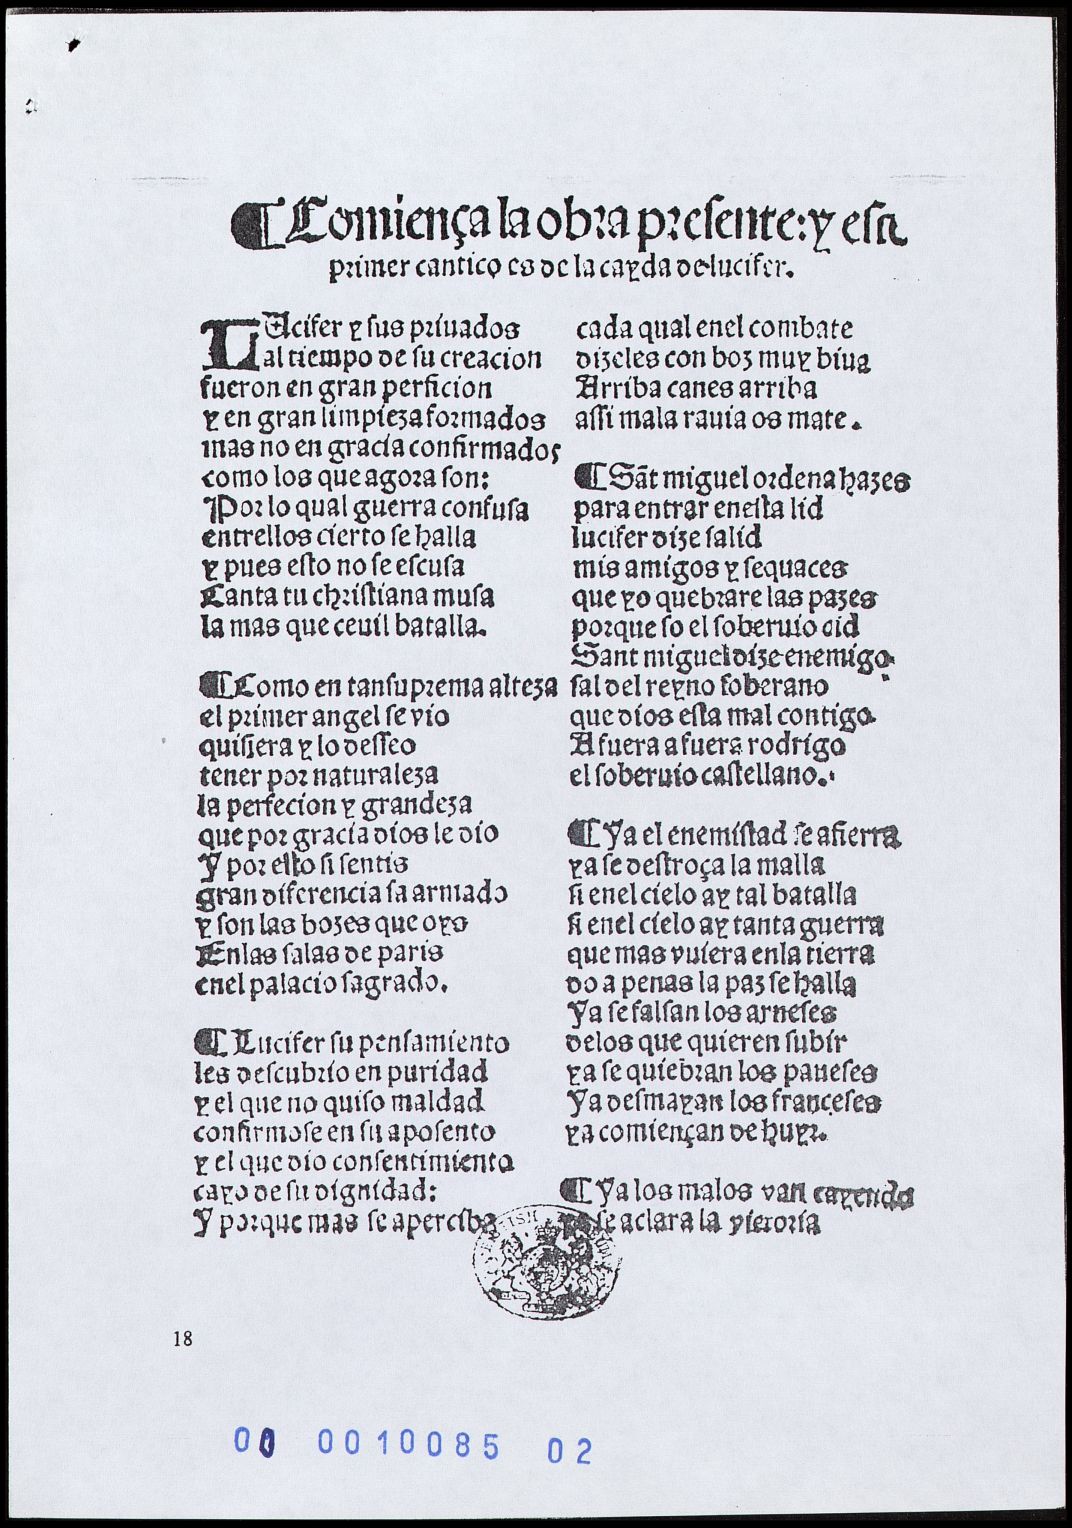 ¶ Comiença la obra presente: y este
primer cantico es de la cayda de lucifer.
LUcifer y sus priuados
al tiempo de su creacion
fueron en gran perficion
y en gran limpieza formados
mas no en gracia confirmados
como los que agora son:
Por lo qual guerra confusa
entrellos cierto se halla
y pues esto no se escusa
Canta tu christiana musa
la mas que ceuil batalla.
¶ Como en tan suprema alteza
el primer angel se vio
quisiera y lo desseo
tener por naturaleza
la perfecion y grandeza
que por gracia dios le dio
Y por esto si sentis
gran diferencia sa armado
y son las bozes que oys
En las salas de paris
enel palacio sagrado.
¶ Lucifer su pensamiento
les descubrio en puridad
y el que no quiso maldad
confirmose en su aposento
y el que dio consentimiento
cayo de su dignidad:
Y porque mas se aperciba
cada qual enel combate
dizeles con boz muy biua
Arriba canes arriba
assi mala rauia os mate.
¶ Sāt miguel ordena hazes
para entrar enesta lid
lucifer dize salid
mis amigos y sequaces
que yo quebrare las pazes
porque so el soberuio cid
Sant miguel dize enemigo
sal del reyno soberano
que dios esta mal contigo
A fuera a fuera rodrigo
el soberuio castellano.
¶ Ya el enemistad se afierra
ya se destroça la malla
si enel cielo ay tal batalla
si enel cielo ay tanta guerra
que mas vuiera enla tierra
do a penas la paz se halla
Ya se falsan los arneses
delos que quieren subir
ya se quiebran los paueses
Ya desmayan los franceses
ya comiençan de huyr.
¶ Ya los malos van cayendo
ya se aclara la victoria
18
00 0010085 02